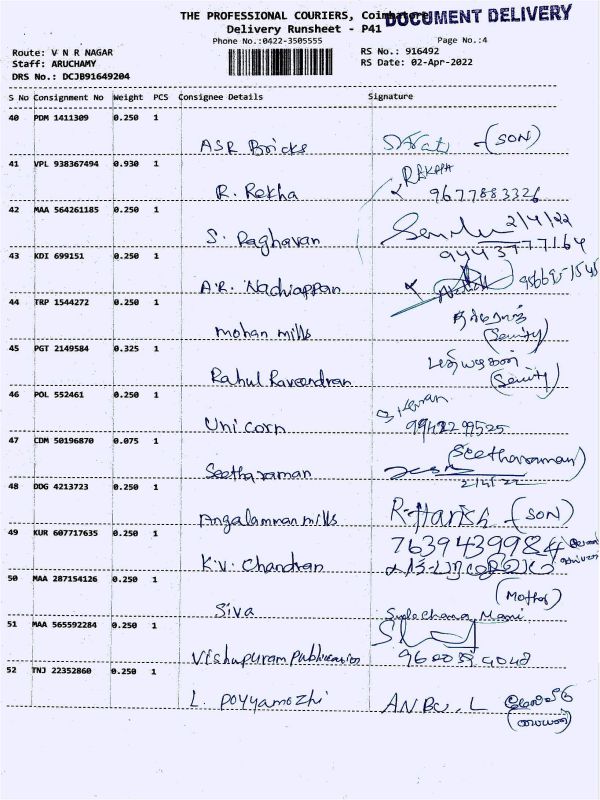 THE PROFESSIONAL COURIERS, Coimbatore
DOCUMENT DELIVERY
Delivery Runsheet - P41
Phone No.:0422-3505555
Page No.:4
Route: V N R NAGAR
RS No.: 916492
Staff: ARUCHAMY
RS Date: 02-Apr-2022
DRS No.: DCJB91649204
S No Consignment No Weight PCS Consignee Details Signature
40 PDM 1411309 0.250 1
ASR Bricks (SON)
41 VPL 938367494 0.930 1
REKHA
R. Rekha 9677883326
42 MAA 564261185 0.250 1
2/4/22
S. Raghavan 9443777164
43 KDI 699151 0.250 1
A.R. Nachiappan
44 TRP 1544272 0.250 1
mohan mills (Seurity)
45 PGT 2149584 0.325 1
Rahul Raveendran (Seurity)
46 POL 552461 0.250 1
Unicorn
47 CDM 50196870 0.075 1
(Seetharaman)
Seetharaman
2/4/22
48 DDG 4213723 0.250 1
Angalamman mills R. Harish (SON)
49 KUR 607717635 0.250 1
7639439984
K.V. Chandran
50 MAA 287154126 0.250 1
(Mother)
Siva
51 MAA 565592284 0.250 1
Vishnupuram Publication
52 TNJ 22352860 0.250 1
L. Poyyamozhi ANBU. L